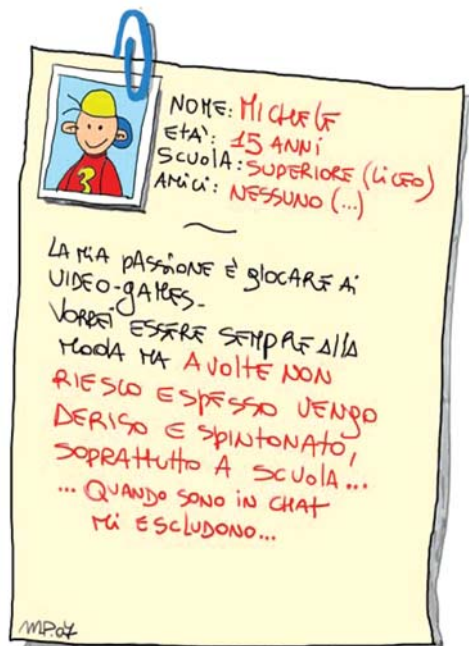 NOME: MICHELE
ETÀ: 15 ANNI
SCUOLA: SUPERIORE (LICEO)
AMICI: NESSUNO (...)
LA MIA PASSIONE È GIOCARE AI
VIDEO-GAMES-
VORREI ESSERE SEMPRE ALLA
MODA MA A VOLTE NON
RIESCO E SPESSO VENGO
DERISO E SPINTONATO,
SOPRATTUTTO A SCUOLA...
... QUANDO SONO IN CHAT
MI ESCLUDONO...
MP.07
3